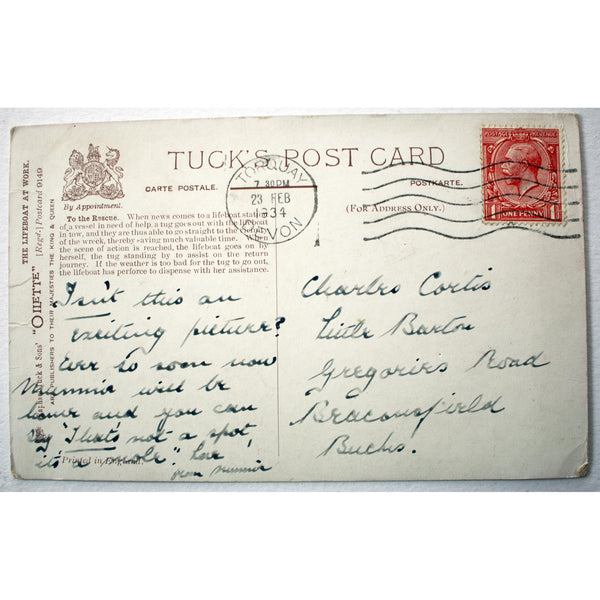 TUCK'S POST CARD
CARTE POSTALE.
POSTKARTE.
(FOR ADDRESS ONLY.)
By Appointment.
THE LIFEBOAT AT WORK.
[Regd.] Postcard 9149
"OILETTE"
& Sons'
PUBLISHERS TO THEIR MAJESTIES THE KING & QUEEN
To the Rescue. When news comes to a lifeboat station
of a vessel in need of help, a tug goes out with the lifeboat
in tow, and they are thus able to go straight to the
of the wreck, thereby saving much valuable time. When
the scene of action is reached, the lifeboat goes on by
herself, the tug standing by to assist on the return
journey. If the weather is too bad for the tug to go out,
the lifeboat has perforce to dispense with her assistance.
TORQUAY
7.30PM
23 FEB
1934
DEVON
POSTAGE REVENUE
1 ONE PENNY 1
Isn't this an
exciting picture?
Ever so soon now
Mummie will be
home and you can
say "That's not a spot,
it's a mole" Love
from Mummie
Printed in England.
Charles Cortis
Little Barton
Gregories Road
Beaconsfield
Bucks.